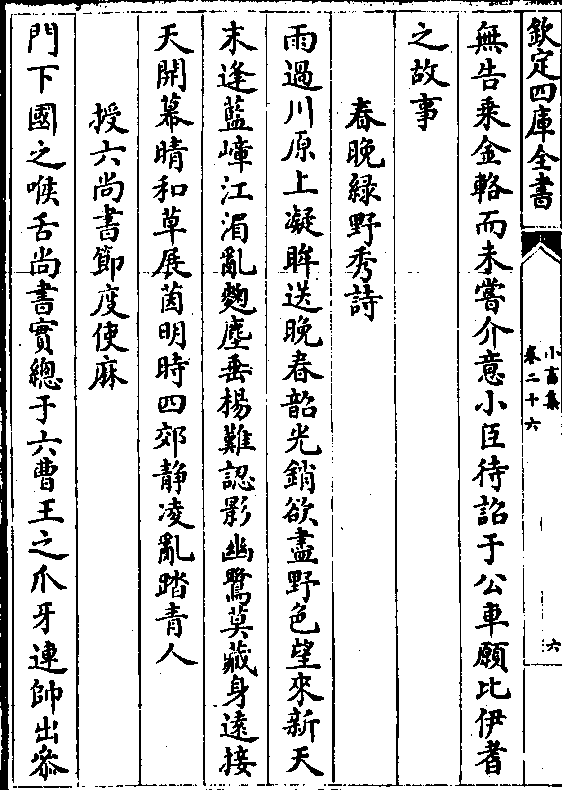 欽定四庫全書
小畜集
卷二十六
六
無告乗金輅而未嘗介意小臣待詔于公車願比伊耆
之故事
春晚緑野秀詩
雨過川原上凝眸送晚春韶光銷欲盡野色望來新天
末逢藍嶂江湄亂麴塵垂楊難認影幽鷺莫藏身遠接
天開幕晴和草展茵明時四郊静凌亂踏青人
授六尚書節度使麻
門下國之喉舌尚書實總于六曹王之爪牙連帥出㕘